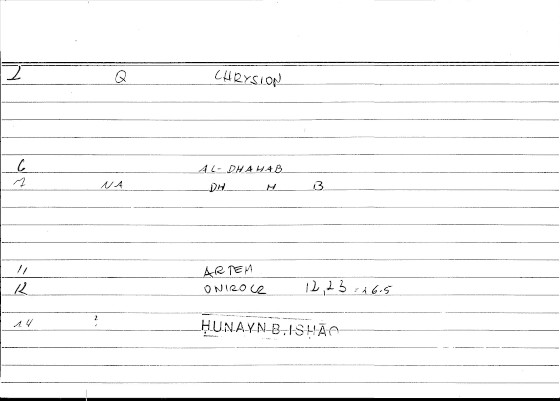 2 Q CHRYSION
6 AL-DHAHAB
7 NA DH H B
11 ARTEM
12 ONIROCR 12,23 = 26.5
14 ? ḤUNAYN B. ISḤĀQ